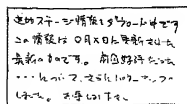 追加ステージ情報をダウンロード中です
この情報は〇月×日に更新された
最新のものです。前回好評だった
…について、さらにパワーアップ
しました。お楽しみ下さい